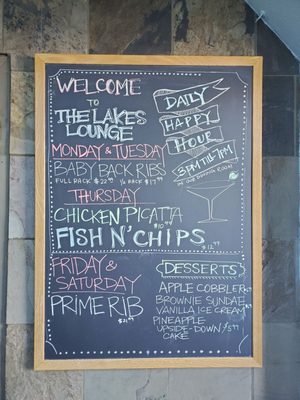 WELCOME
TO
THE LAKES
LOUNGE
MONDAY & TUESDAY
BABY BACK RIBS
FULL RACK $22.99 ½ RACK $17.99
THURSDAY
CHICKEN PICATTA
FISH N' CHIPS
FRIDAY &
SATURDAY
PRIME RIB
DAILY
HAPPY
HOUR
3PM TILL 7PM
IN OUR DINING ROOM
DESSERTS
APPLE COBBLER
BROWNIE SUNDAE
VANILLA ICE CREAM
PINEAPPLE
UPSIDE-DOWN
CAKE